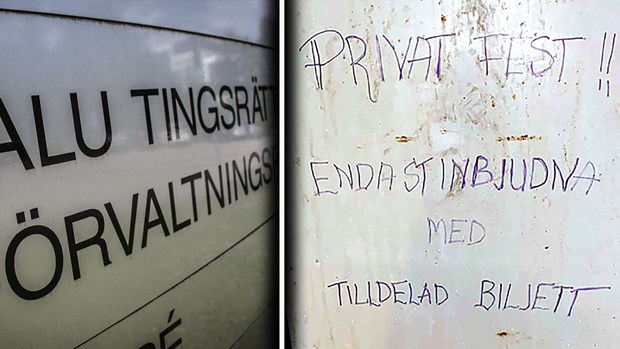 ALU TINGSRÄTT
ÖRVALTNINGS
É
PRIVAT FEST!!
ENDAST INBJUDNA
MED
TILLDELAD BILJETT